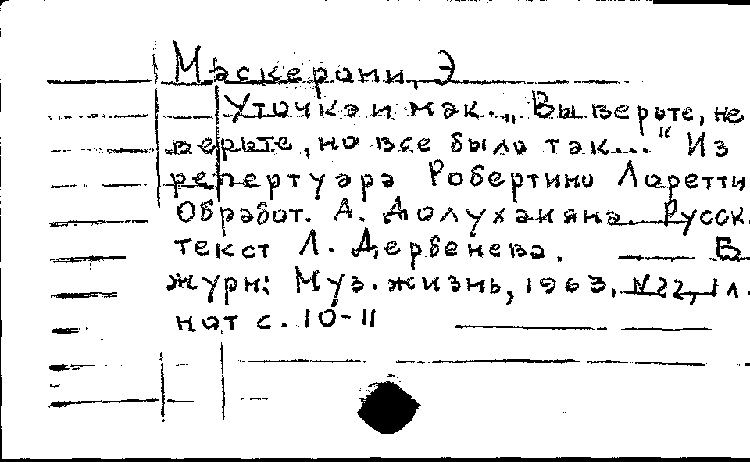 Маскерони, Э
Уточка и мак. „Вы верьте, не
верьте, но все было так..." Из
репертуара Робертино Лоретти
Обработ. А. Долуханяна. Русск.
текст Л. Дербенева. В
журн: Муз. жизнь, 1963, №22, 1 л.
нот с. 10-11